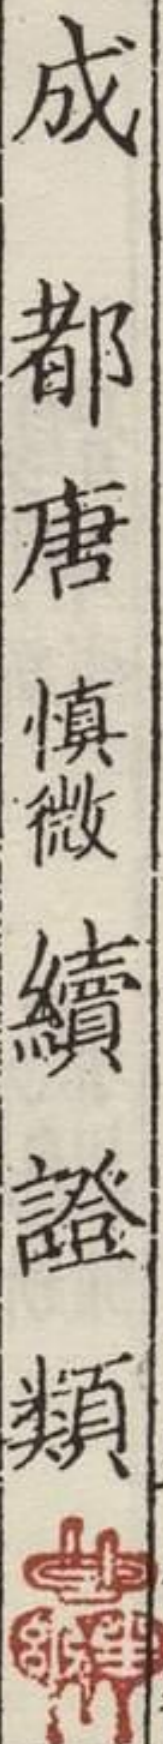 成都唐慎微續證類